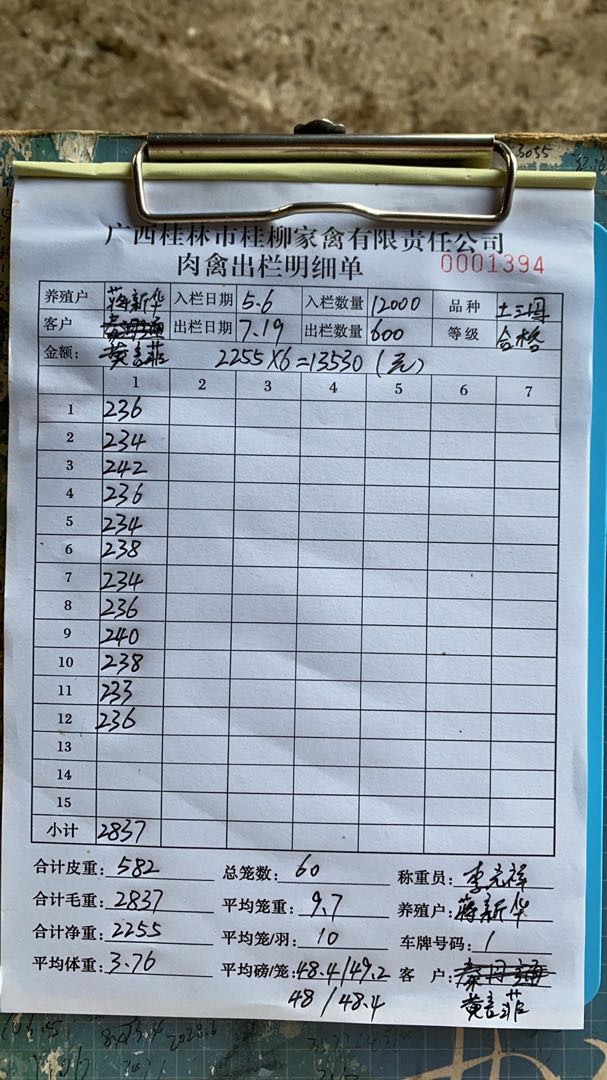 广西桂林市桂柳家禽有限责任公司
肉禽出栏明细单 0001394
养殖户 蒋新华 入栏日期 5.6 入栏数量 12000 品种 土三周
客户 出栏日期 7.19 出栏数量 600 等级 合格
金额: 2255X6=13530(元)
1 2 3 4 5 6 7
1 236
2 234
3 242
4 236
5 234
6 238
7 234
8 236
9 240
10 238
11 233
12 236
13
14
15
小计 2837
合计皮重: 582 总笼数: 60 称重员:
合计毛重: 2837 平均笼重: 9.7 养殖户: 蒋新华
合计净重: 2255 平均笼/羽: 10 车牌号码: 1
平均体重: 3.76 平均磅/笼: 48.4/49.2 客 户:
48/48.4